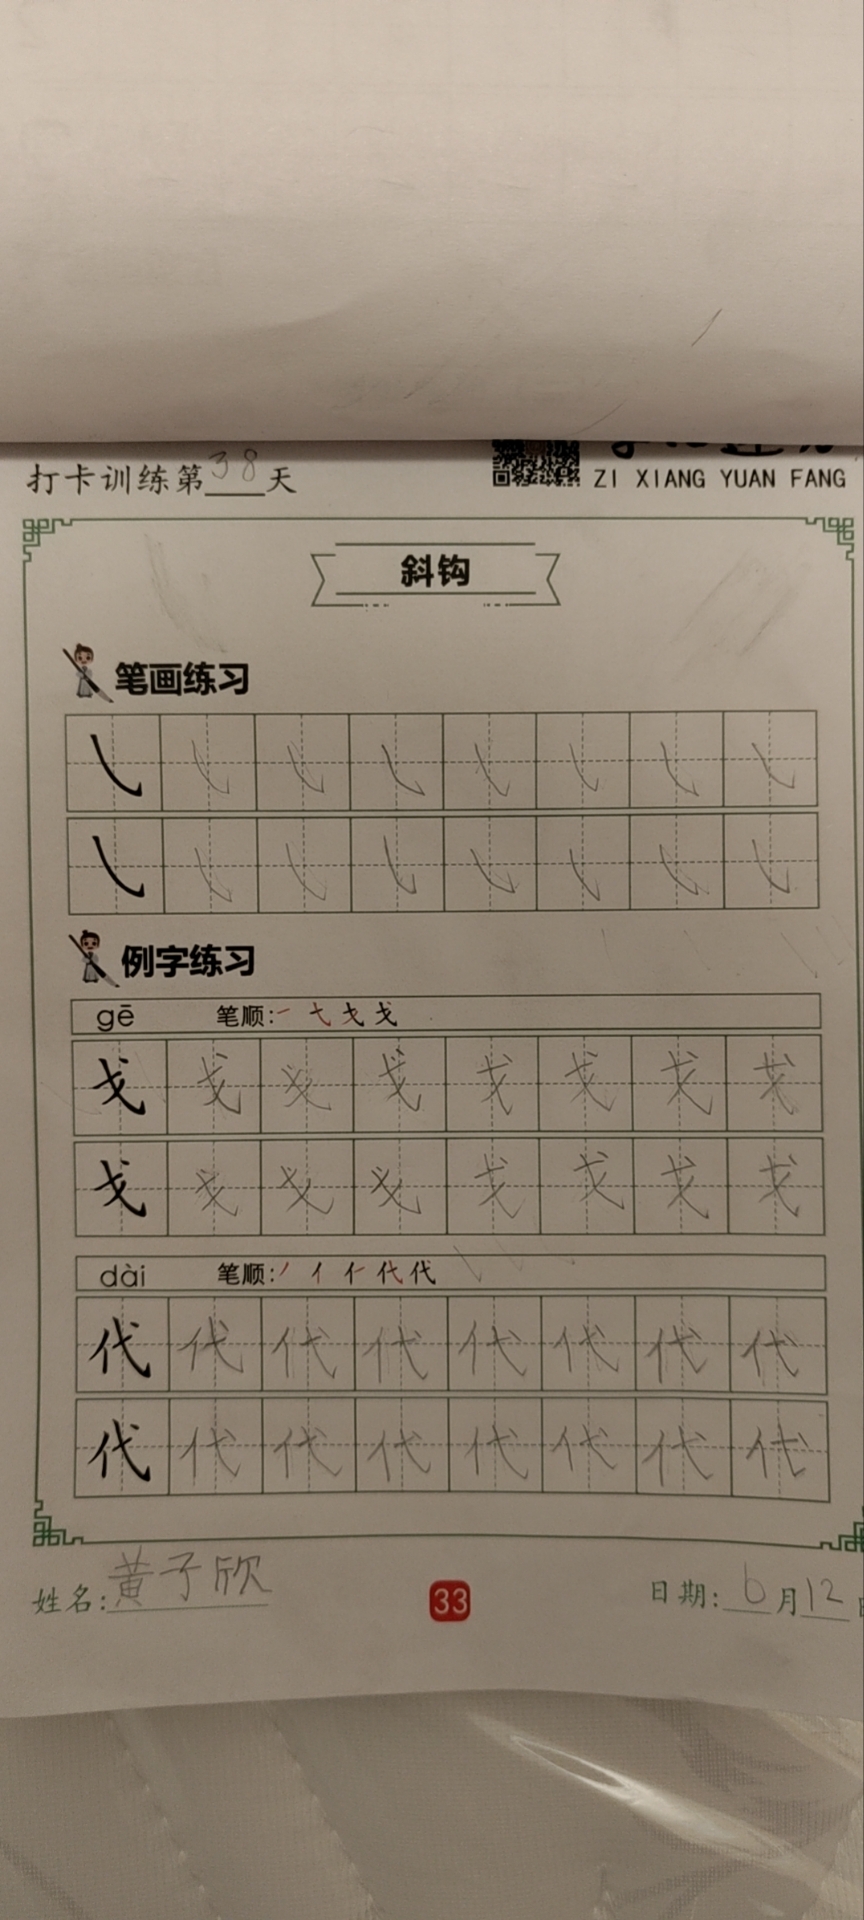 打卡训练第38天
ZI XIANG YUAN FANG
斜钩
笔画练习
㇂ ㇂ ㇂ ㇂ ㇂ ㇂ ㇂ ㇂
㇂ ㇂ ㇂ ㇂ ㇂ ㇂ ㇂ ㇂
例字练习
gē 笔顺:一 弋 戈 戈
戈 戈 戈 戈 戈 戈 戈 戈
戈 戈 戈 戈 戈 戈 戈 戈
dài 笔顺:丿 亻 仁 代 代
代 代 代 代 代 代 代 代
代 代 代 代 代 代 代 代
姓名:黄子欣
33
日期:6月12日